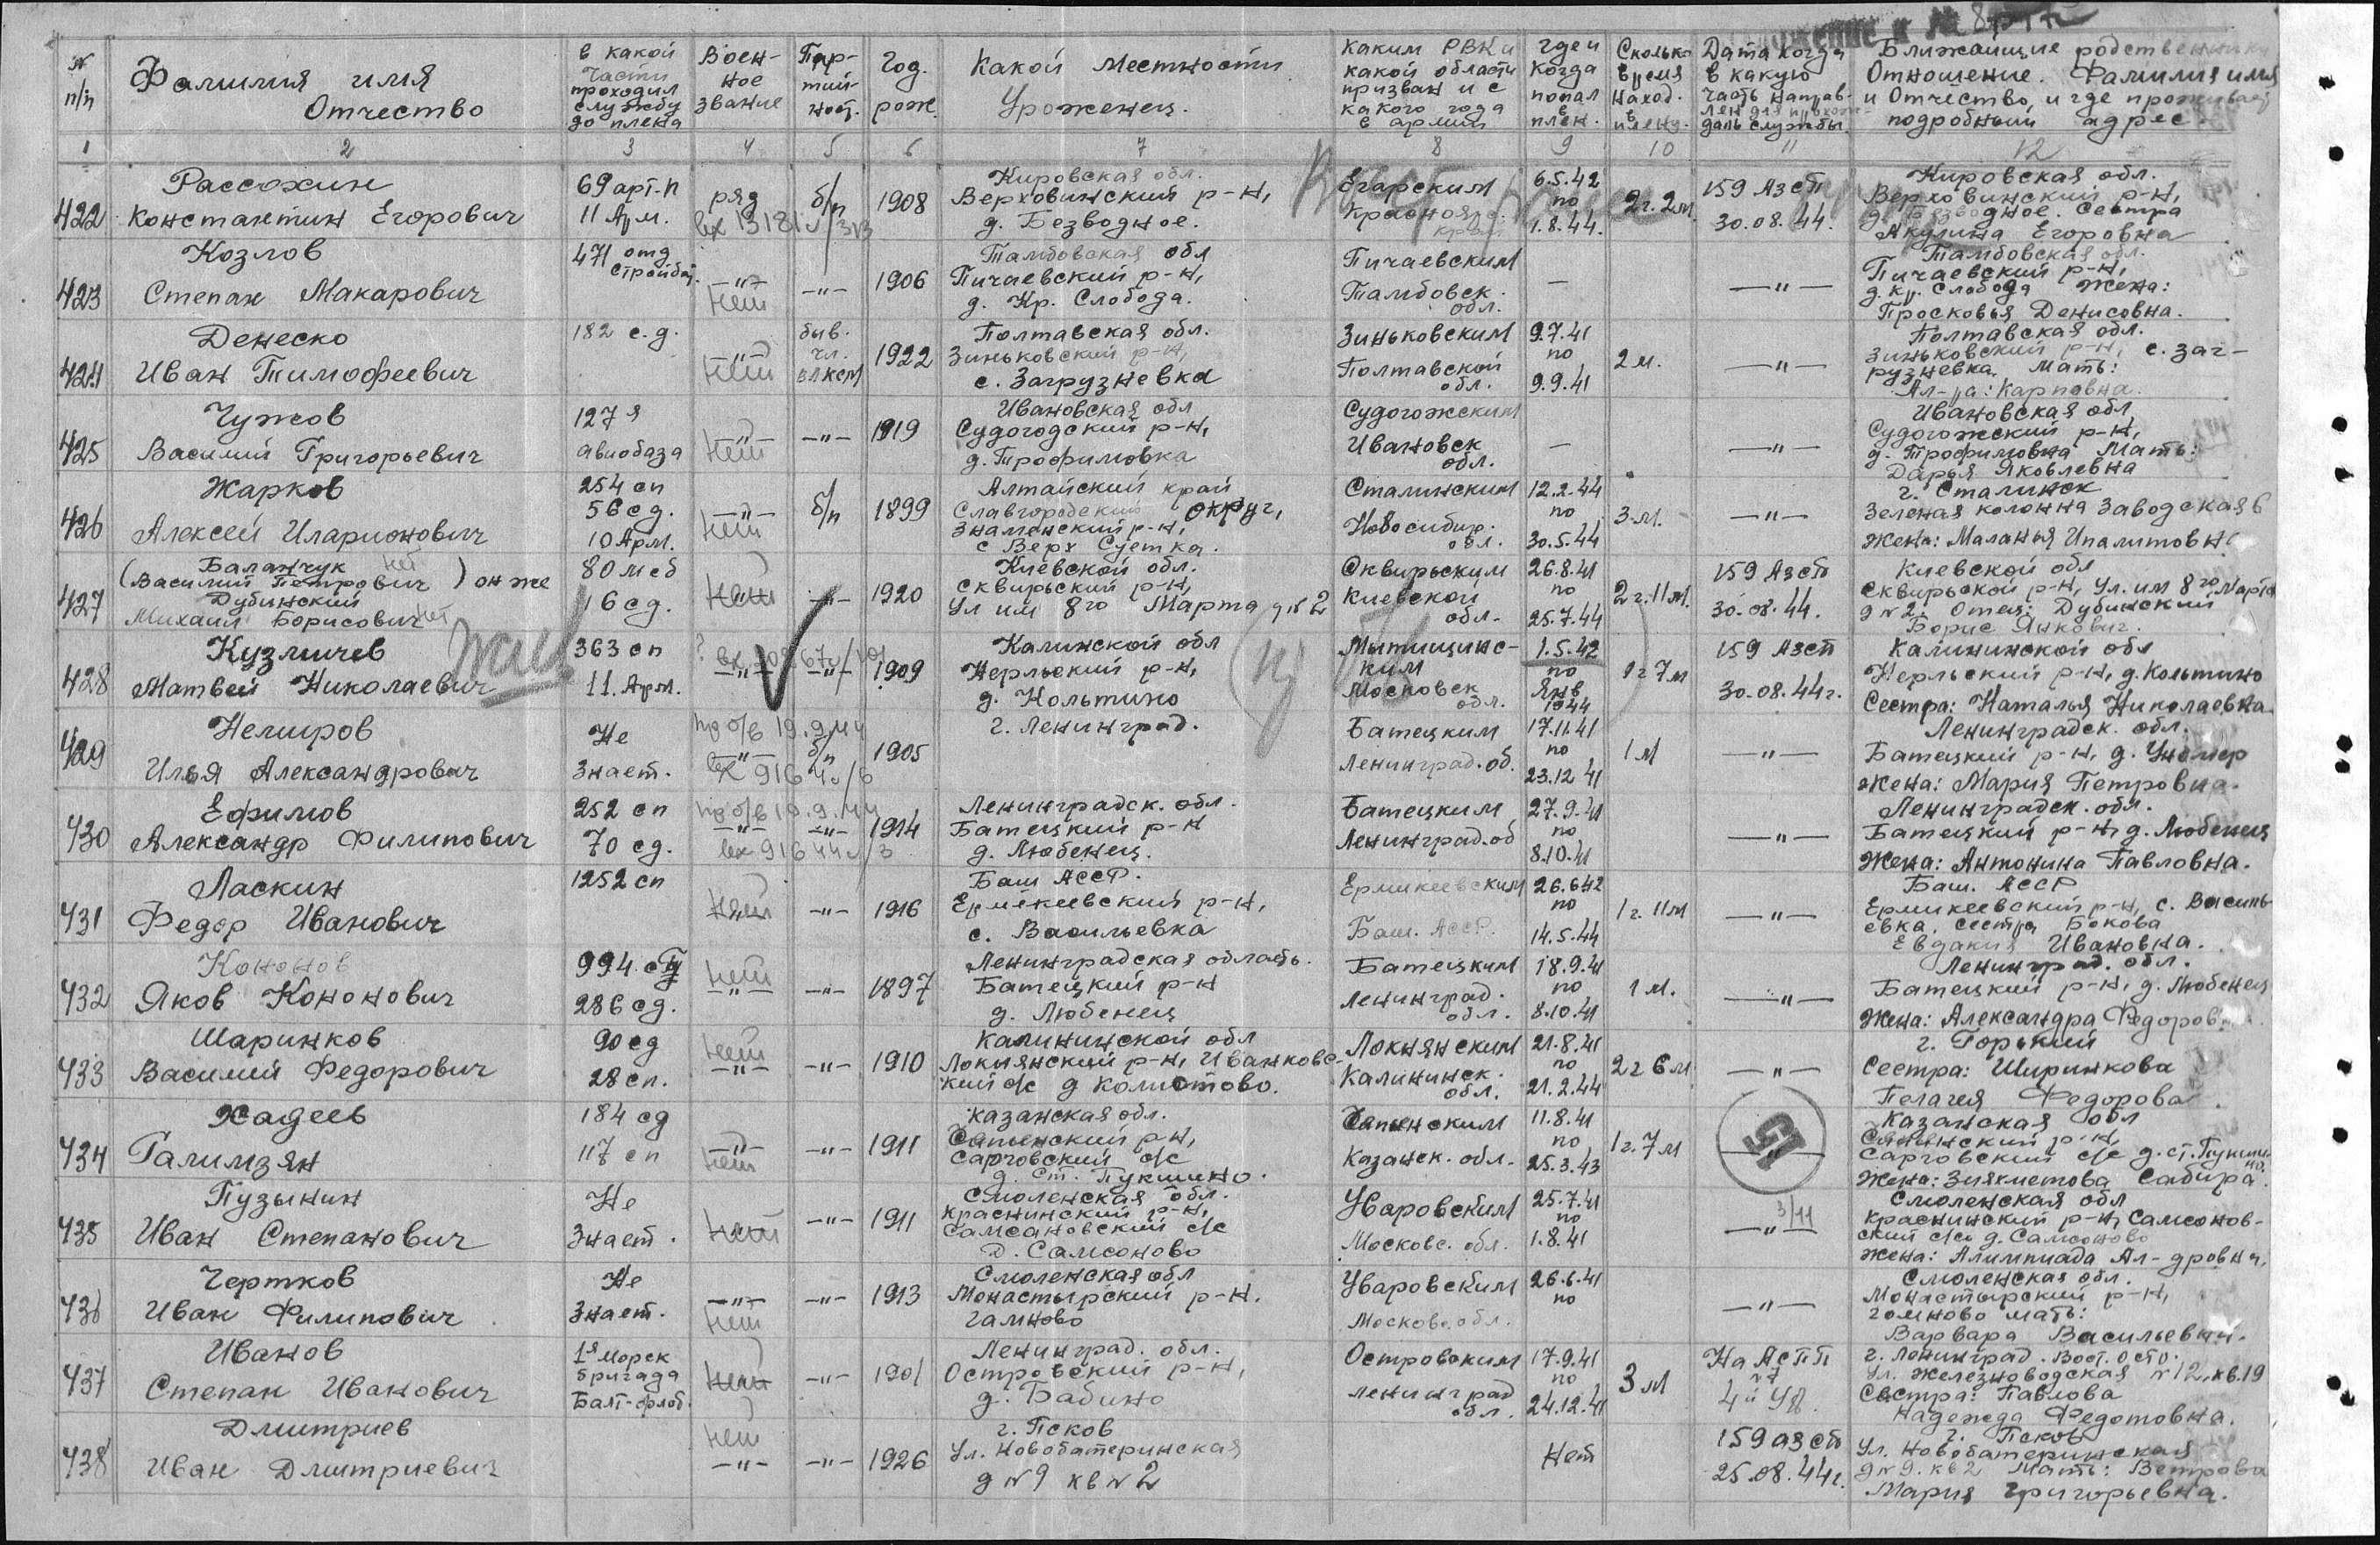 № п/п
Фамилия имя Отчество
в какой части проходил службу до плена
Воен-ное звание
Пар-тий-ност.
Год. рожд.
Какой местности Уроженец.
каким РВК и какой области призван и с какого года в армии
где и когда попал в плен.
Сколько время наход. в плену.
Дата когда в какую часть направ-лен для прохожд. даль службы.
Ближайшие родственники Отношение. Фамилия имя и Отчество, и где проживает подробный адрес
1 2 3 4 5 6 7 8 9 10 11 12
422 Рассохин Константин Егорович
69 арт.п 11 Арм.
ряд б/п 1908
вх 13181
Кировская обл. Верховинский р-н, д. Безводное.
Егарским Красноярс. край
6.5.42 по 1.8.44.
2г. 2м.
159 Азсп 30.08.44.
Кировская обл. Верховинский р-н, д. Безводное. Сестра Акулина Егоровна
423 Козлов Степан Макарович
471 отд стройбат.
—"— нет —"— 1906
Тамбовская обл Пичаевский р-н, д. Кр. Слобода.
Пичаевским Тамбовск. обл.
— —"—
Тамбовская обл. Пичаевский р-н, д. кр. Слобода жена: Просковья Денисовна.
424 Денеско Иван Тимофеевич
182 с.д.
—"— нет быв. чл. влксм 1922
Полтавская обл. Зиньковский р-н, с. Загрузневка
Зиньковским Полтавской обл.
9.7.41 по 9.9.41
2 м. —"—
Полтавская обл. Зиньковский р-н, с. Заг-рузневка. Мать: Ал-ра: Карповна.
425 Чужов Василий Григорьевич
127я авиобаза
—"— нет —"— 1919
Ивановская обл Судогодский р-н, д. Трофимовка
Судогожским Ивановск обл.
— —"—
Ивановская обл, Судогожский р-н, д. Трофимовка Мать: Дарья Яковлевна
426 Жарков Алексей Иларионович
254 сп 56 сд. 10 Арм.
—"— нет б/п 1899
Алтайский край Славгородский округ, Знаменский р-н, с Верх Суетка.
Сталинским Новосибир. обл.
12.2.44 по 30.5.44
3 м. —"—
г. Сталинск Зеленая колонна Заводская 6 жена: Маланья Ипалитовн
427 (Баланчук Василий Петрович) он же Дубинский Михаил Борисович нет
80 мсб 16 сд.
нет —"— 1920
Киевской обл. Сквирьский р-н, Ул им 8го Марта д №2
Сквирьским Киевской обл.
26.8.41 по 25.7.44
2 г. 11 м.
159 Азсп 30.08.44.
Киевской обл Сквирьской р-н, Ул. им 8го Марта д №2. Отец: Дубинский Борис Янкович.
428 Кузмичев Матвей Николаевич
363 сп 11. Арм.
—"— —"— 1909
Калинской обл Нерльский р-н, д. Кольтино
Мытищинс-ким Московск обл.
1.5.42 по Янв 1944
1 г 7 м
159 Азсп 30.08.44г.
Калининской обл Нерльский р-н, д. Кольтино Сестра: Наталья Николаевна
429 Немиров Илья Александрович
Не знает.
пр о/в 19.9.44
—"— б/п 1905
г. Ленинград.
Батецким Ленинград. об.
17.11.41 по 23.12 41
1 м —"—
Ленинградск. обл. Батецкий р-н, д. жена: Мария Петровна.
430 Ефимов Александр Филипович
252 сп 70 сд.
пр о/в 19.9.44
—"— —"— 1914
Ленинградск. обл. Батецкий р-н д. Любенец.
Батецким Ленинград. об
27.9.41 по 8.10.41
—"—
Ленинградск. обл. Батецкий р-н, д. Любенец жена: Антонина Павловна.
431 Ласкин Федор Иванович
1252 сп
нет —"— 1916
Баш АССР. Ермекеевский р-н, с. Васильевка
Ермикеевским Баш. АССР.
26.6.42 по 14.5.44
1 г. 11 м —"—
Баш. АССР Ермикеевский р-н, с. Василь-евка. сестра Бокова Евдакия Ивановна.
432 Кононов Яков Кононович
994 сп 286 сд.
нет —"— —"— 1897
Ленинградская область. Батецкий р-н д. Любенец
Батецким Ленинград. обл.
18.9.41 по 8.10.41
1 м. —"—
Ленинград. обл. Батецкий р-н, д. Любенец жена: Александра Федоров
433 Шаринков Василий Федорович
90 сд 28 сп.
нет —"— —"— 1910
Калининской обл Локнянский р-н, Иванковс-кий с/с д Колиотово.
Локнянским Калининск. обл.
21.8.41 по 21.2.44
2 г 6 м —"—
г. Горький Сестра: Ширинкова Пелагея Федорова
434 Хадеев Галимзян
184 сд 117 сп
—"— нет —"— 1911
Казанская обл. р-н, Сарговский с/с д. Ст. Пукшино.
Казанск. обл.
11.8.41 по 25.3.43
1 г. 7 м
Казанская обл р-н, Сарговский с/с д. ст. Пукшино. жена: Зияхметова Сабира.
435 Пузынин Иван Степанович
Не знает.
нет —"— 1911
Смоленская обл. Краснинский р-н, Самсановский с/с Д. Самсоново
Уваровским Московс. обл.
25.7.41 по 1.8.41
—"—
Смоленская обл Краснинский р-н, Самсонов-ский с/с д. Самсоново жена: Алимпиада Ал-дровна.
436 Чертков Иван Филипович
Не знает.
—"— нет —"— 1913
Смоленская обл Монастырский р-н. Гамново
Уваровским Московс. обл.
26.6.41 по
—"—
Смоленская обл. Монастырский р-н, Гомново мать: Варвара Васильевна.
437 Иванов Степан Иванович
1я морск бригада Балт-флот.
нет —"— 1901
Ленинград. обл. Островский р-н, д. Бабино
Островским Ленинград обл.
17.9.41 по 24.12.41
3 м
На АСПП 4й УФ.
г. Ленинград. Вост. осто. Ул. Железноводская №12, кв.19 Сестра: Павлова Надежда Федотовна.
438 Дмитриев Иван Дмитриевич
нет —"— —"— 1926
г. Псков Ул. Новобатеринская д №9 кв №2
Нет
159 азсп 25.08.44г.
г. Псков Ул. Новобатеринская д №9. кв 2 Мать: Ветрова Мария Григорьевна.